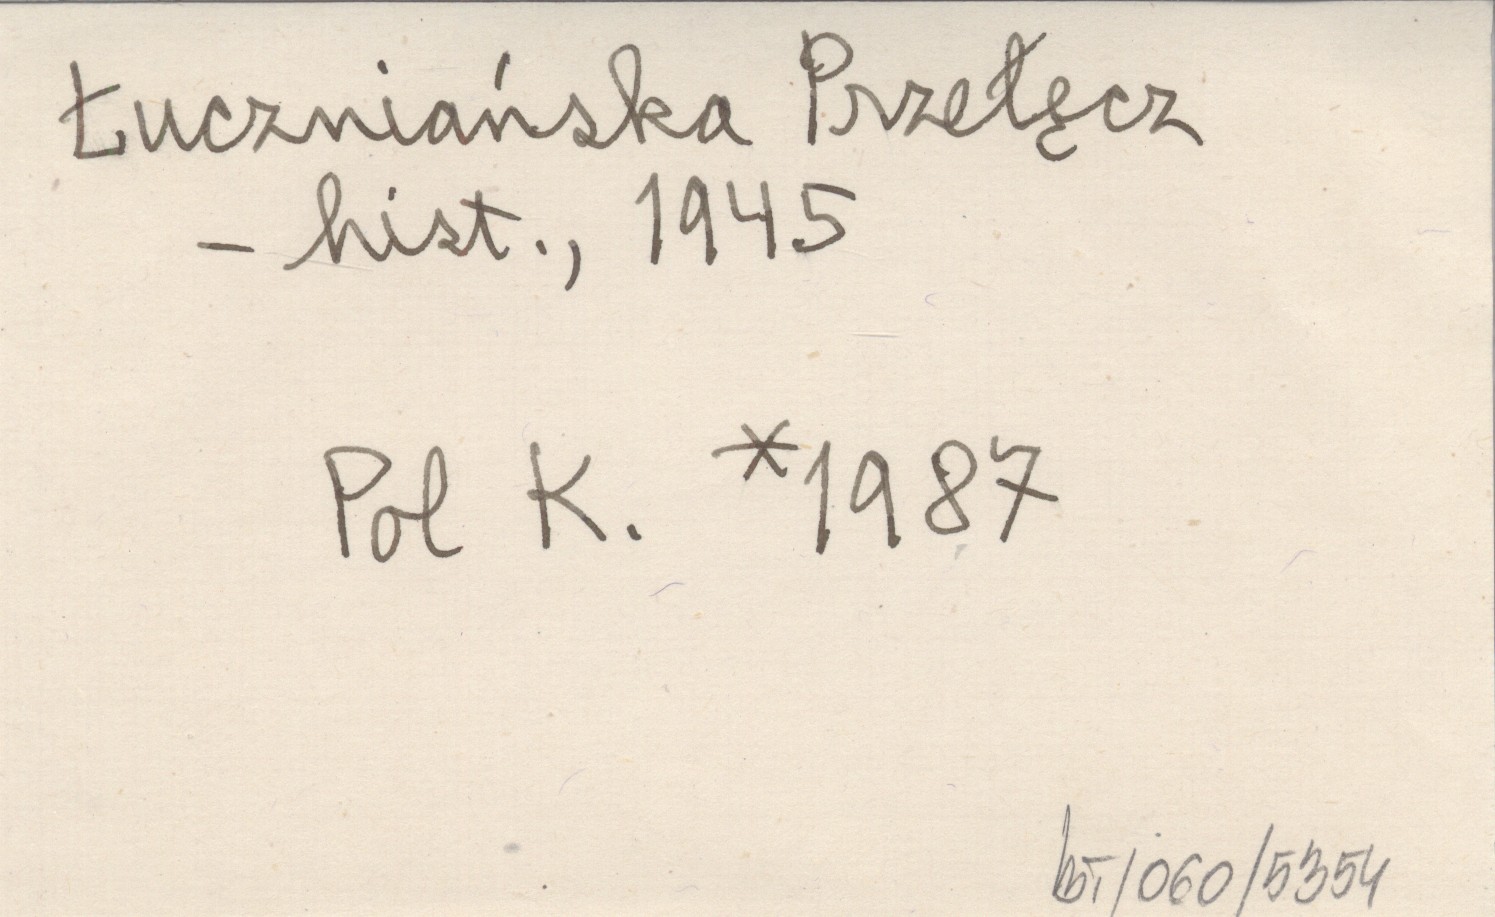 Łuczniańska Przełęcz
- hist., 1945
Pol K. *1987
/060/5354